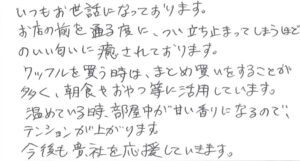 いつもお世話になっております。
お店の前を通る度に、つい立ち止まってしまうほど
のいい匂いに癒されております。
ワッフルを買う時は、まとめ買いをすることが
多く、朝食やおやつ等に活用しています。
温めている時、部屋中が甘い香りになるので、
テンションが上がります。
今後も貴社を応援していきます。